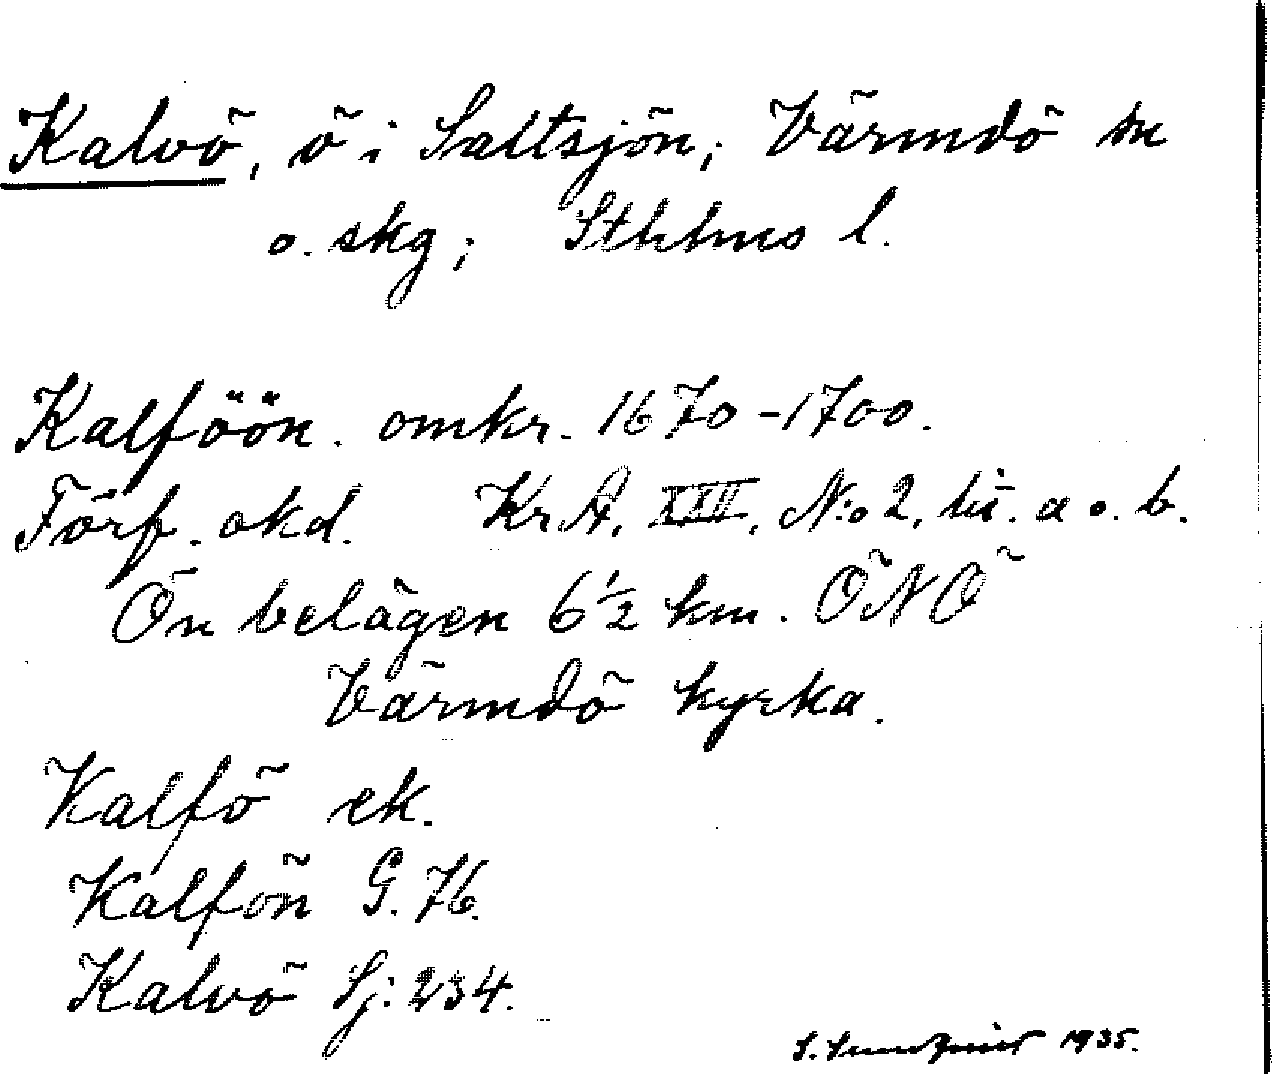 Kalvö, ö i Saltsjön; Värmdö sn
o. skg; Sthlms l.
Kalföön. omkr. 1670-1700.
Förf. okd. KrA, XIII, N:o 2, lit. a o. b.
Ön belägen 6 1/2 km. ÖNÖ
Värmdö kyrka.
Kalfö ek.
Kalfön G. 76.
Kalvö Sj: 234.
S. 1935.